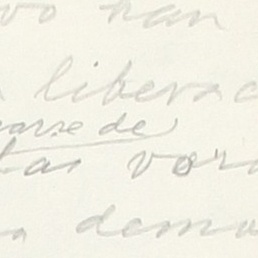 han
libera
arse de
tas vora
demo